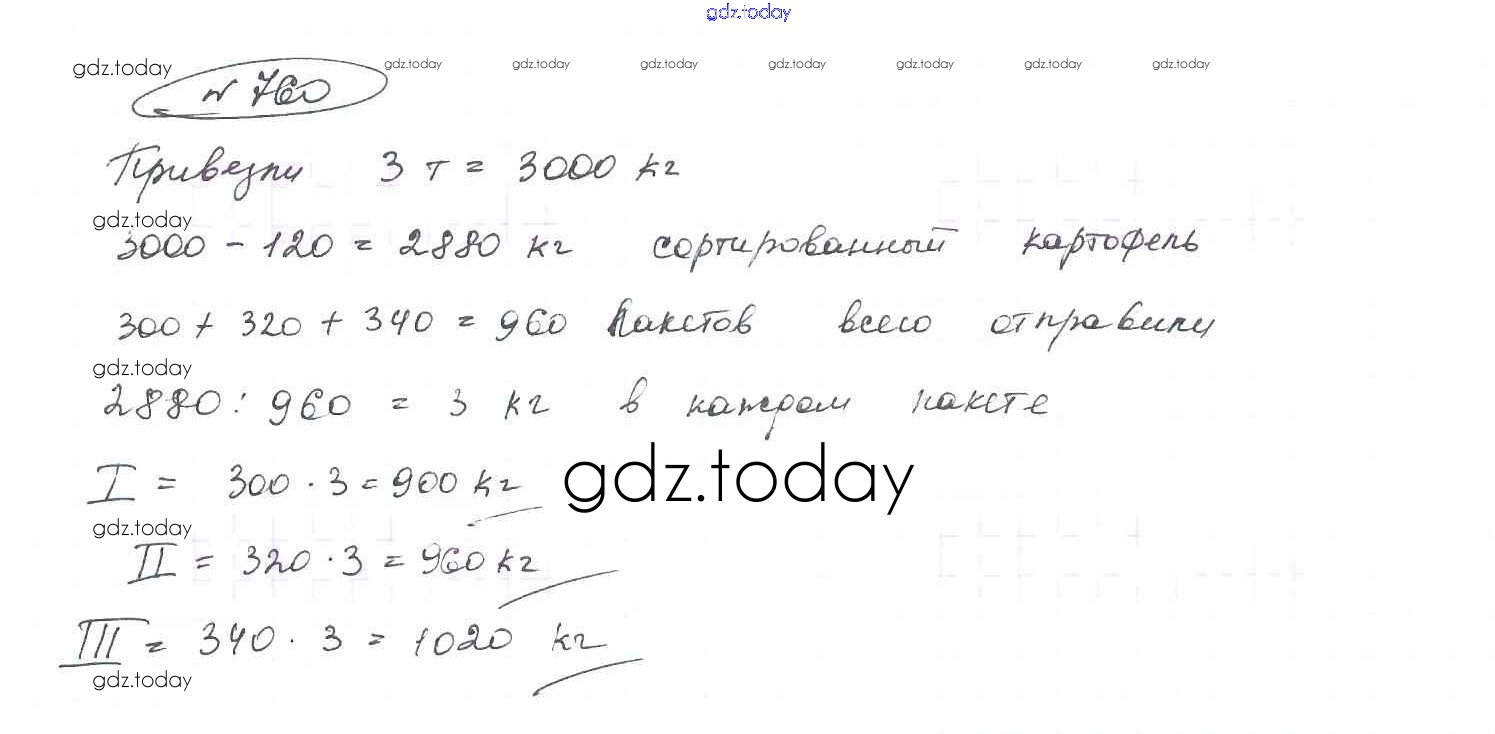 gdz.today
gdz.today gdz.today gdz.today gdz.today gdz.today gdz.today gdz.today gdz.today
№ 760
Привезли 3 т = 3000 кг
gdz.today
3000 - 120 = 2880 кг сортированный картофель
300 + 320 + 340 = 960 пакетов всего отправили
gdz.today
2880 : 960 = 3 кг в каждом пакете
I = 300 · 3 = 900 кг
gdz.today
gdz.today
II = 320 · 3 = 960 кг
III = 340 · 3 = 1020 кг
gdz.today